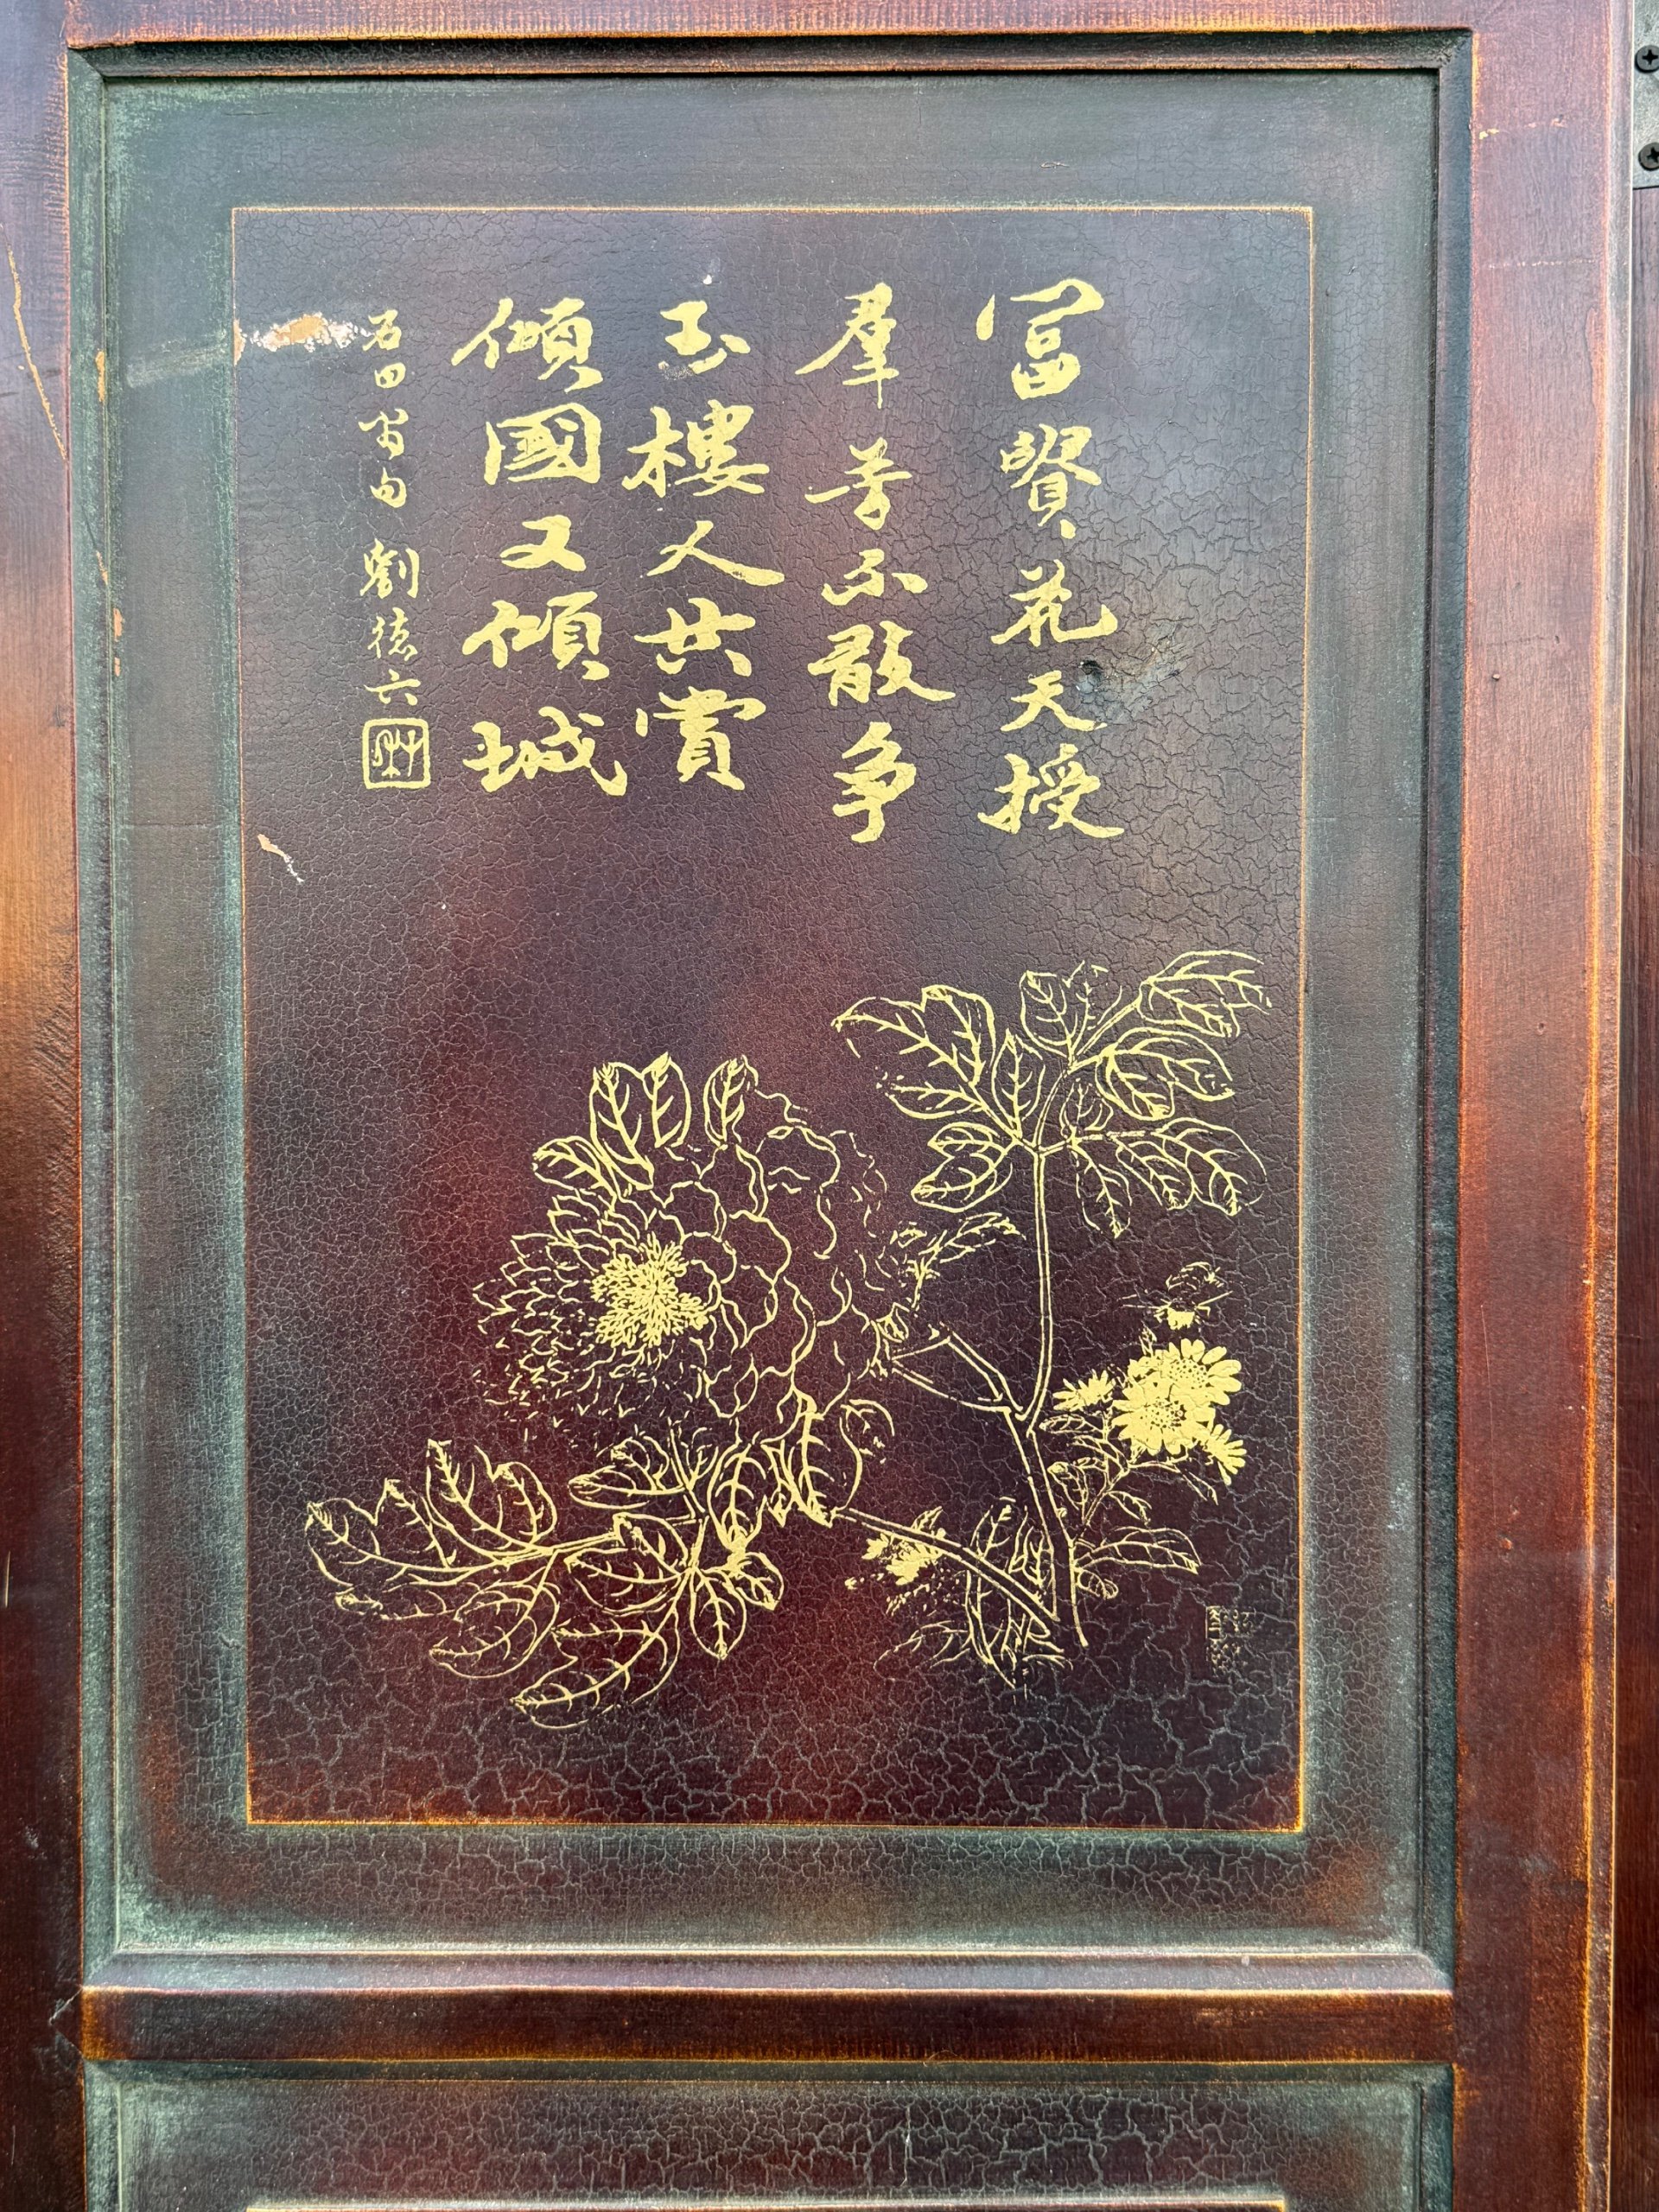 冨賢花天授
羣芳不敢爭
玉樓人共賞
傾國又傾城
石田翁句 劉德六